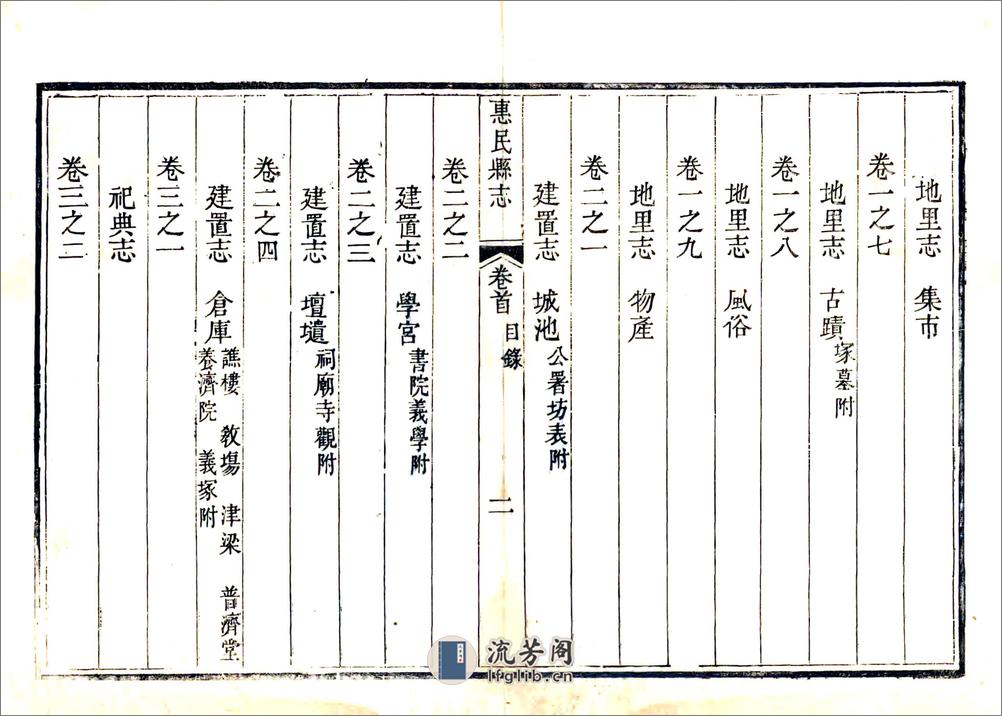 地里志　集市
卷一之七
地里志　古蹟 冢墓附
卷一之八
地里志　風俗
卷一之九
地里志　物產
卷二之一
建置志　城池 公署坊表附
惠民縣志　卷首 目錄　二
卷二之二
建置志　學宮 書院義學附
卷二之三
建置志　壇壝 祠廟寺觀附
卷二之四
建置志　倉庫 譙樓　教場　津梁　普濟堂
養濟院　義冢附
卷三之一
祀典志
卷三之二
流芳阁
lfglib.cn